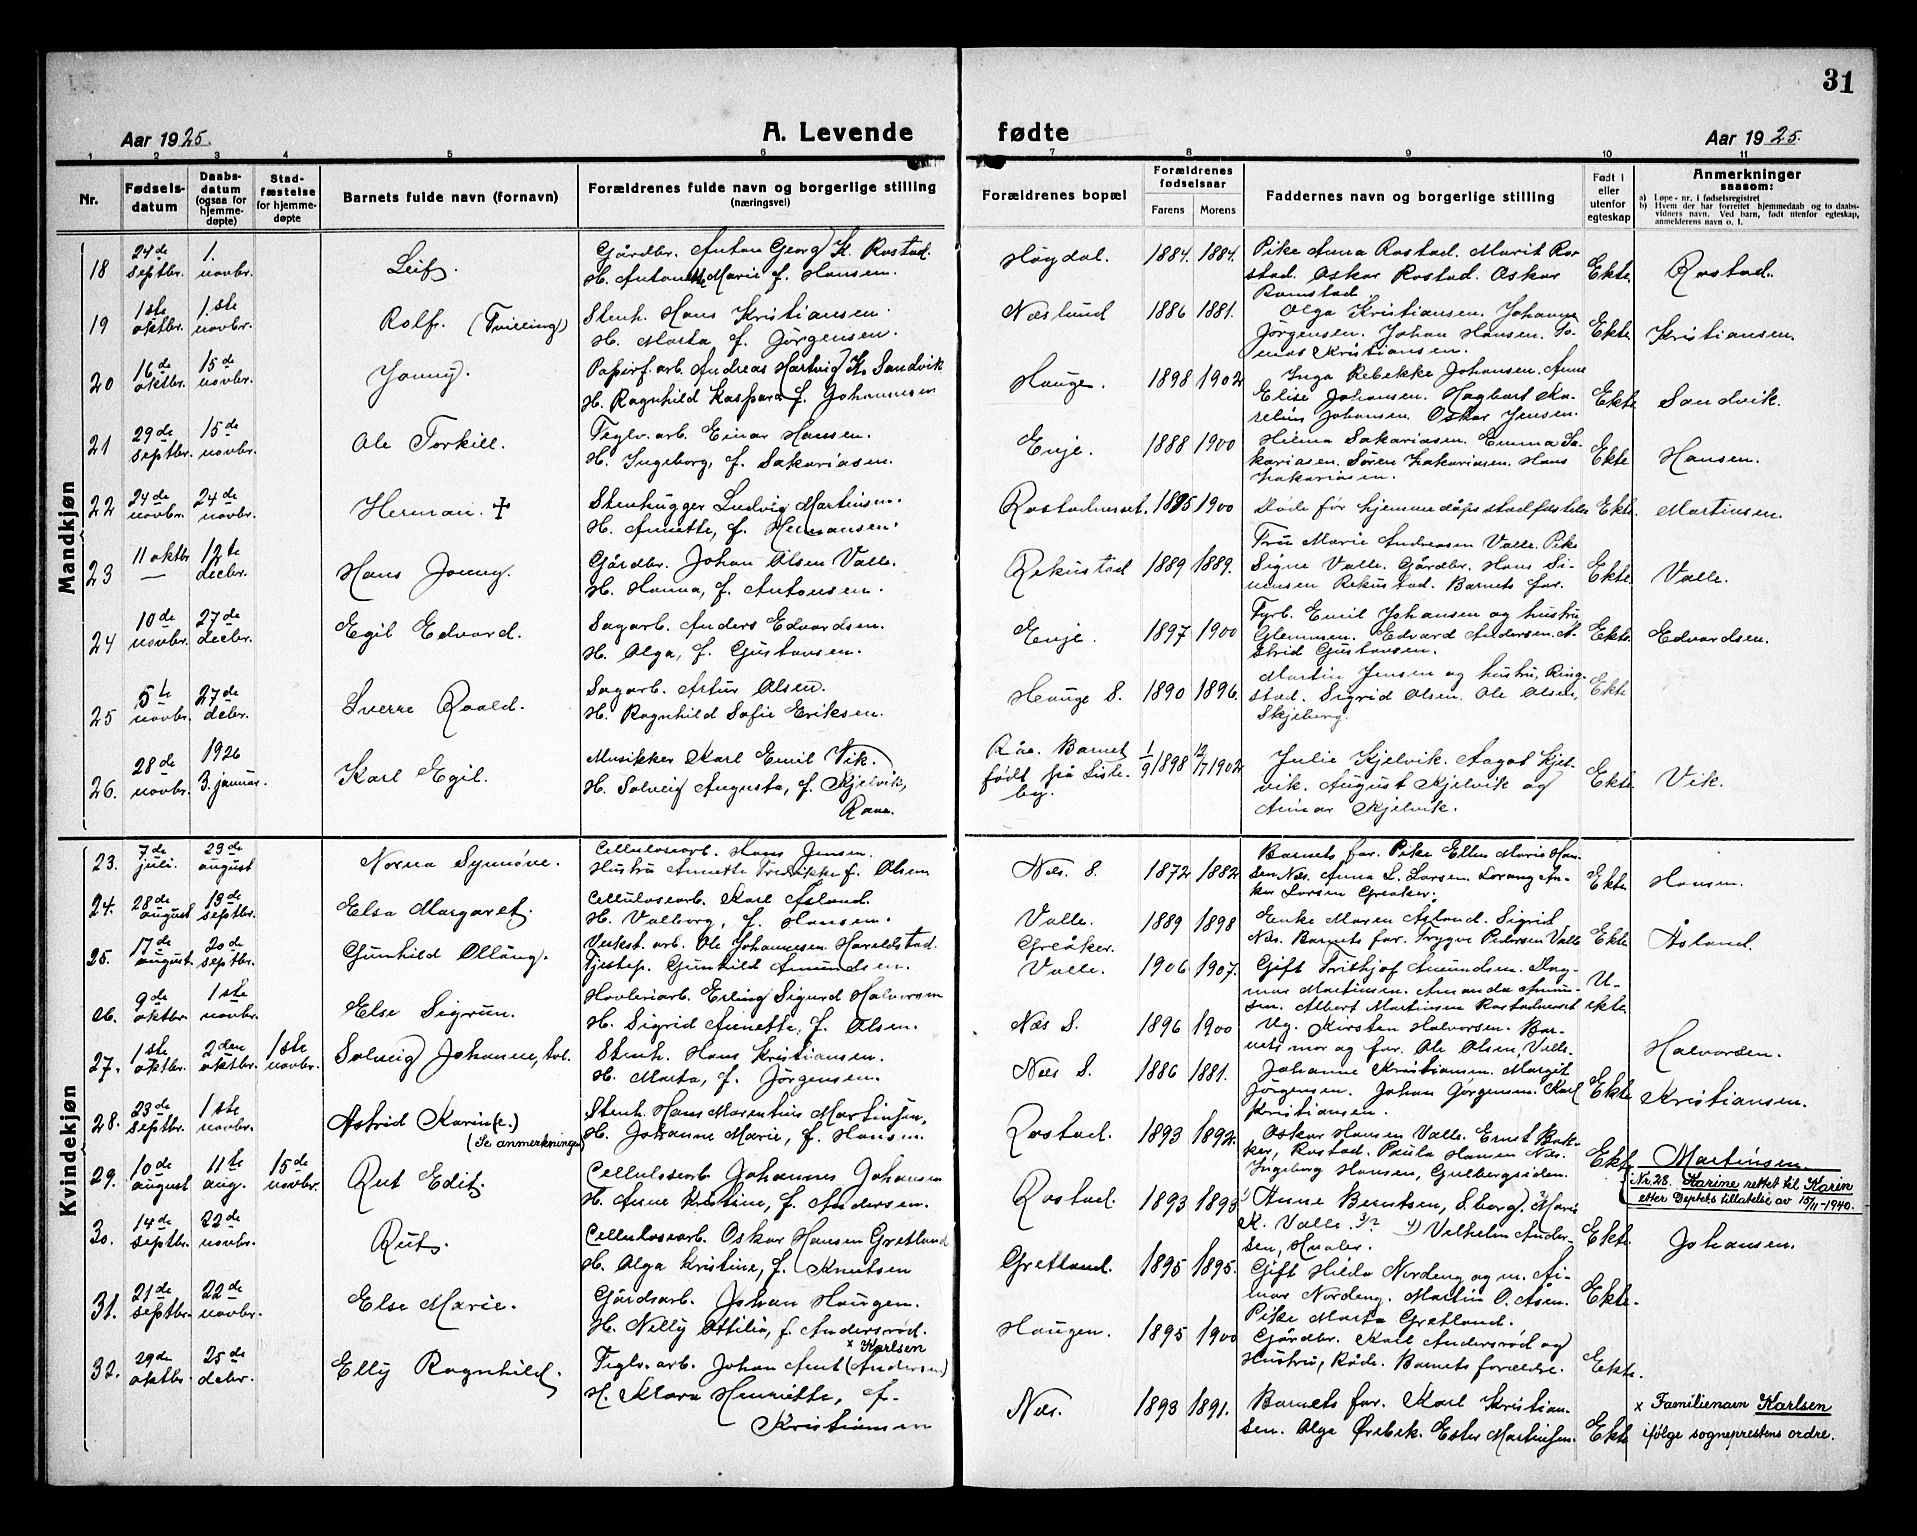 31
Aar 1925.
A. Levende
fødte
Aar 1925.
1 2 3 4 5 6 7 8 9 10 11
Nr.
Fødsels-
datum
Daabs-
datum
(ogsaa for
hjemme-
døpte)
Stad-
fæstelse
for hjemme-
døpte
Barnets fulde navn (fornavn)
Forældrenes fulde navn og borgerlige stilling
(næringsvei)
Forældrenes bopæl
Forældrenes
fødselsaar
Farens Morens
Faddernes navn og borgerlige stilling
Født i
eller
utenfor
egteskap
Anmerkninger
saasom:
a) Løpe-nr. i fødselsregistret
b) Hvem der har forrettet hjemmedaab og to daabs-
vidners navn. Ved barn, født utenfor egteskap,
anmelderens navn o. l.
Mandkjøn
18 24de septbr. 1. novbr. Leif. Gårdbr. Anton Georg K. Rostad.
H. Antonette Marie f. Hansen.
Høgdal. 1884. 1884. Pike Anna Rostad. Marit Ro-
stad. Oskar Rostad. Oskar
Ramstad
Ekte Rostad.
19 1ste oktbr. 1.ste novbr. Rolf. (Tvilling) Stenh. Hans Kristiansen.
H. Marta f. Jørgensen.
Næslund 1886 1881. Olga Kristiansen. Johanne
Jørgensen. Johan Hansen. To-
mas Kristiansen.
Ekte Kristiansen.
20 16de oktbr. 15de novbr. Jonny. Papirf.arb. Andreas Hartvig K. Sandvik
H. Ragnhild Kaspara f. Johannesen
Hauge. 1898 1902 Inga Rebekke Johansen. Anne
Elise Johansen. Hagbart Ka-
relius Johansen. Oskar Jensen.
Ekte Sandvik.
21 29de septbr. 15de novbr. Ole Torkill. Teglv.arb. Einar Hansen.
H. Ingeborg, f. Sakariasen.
Enje. 1888 1900 Hilma Sakariasen. Emma Sa-
kariasen. Søren Zakariasen. Hans
Zakariasen.
Ekte Hansen.
22 24de novbr. 24de novbr. Herman. ✝ Stenhugger Ludvig Martinsen.
H. Annette, f. Hermansen.
Rostadmoset. 1895 1900 Døde før hjemmedåpsstadfestelse Ekte. Martinsen.
23 11 oktbr. — 12te decbr. Hans Jonny. Gårdbr. Johan Olsen Valle.
H. Hanna, f. Antonsen.
Rekustad 1889 1889. Fru Marie Andreasen Valle. Pike
Signe Valle. Gårdbr. Hans Si-
mensen Rekustad. Barnets far.
Ekte. Valle.
24 10de novbr. 27de decbr. Egil Edvard. Sagarb. Anders Edvardsen.
H. Olga, f. Gustavsen.
Enje. 1897 1900 Fyrb. Emil Johansen og hustru
Glemmen. Edvard Andersen. A-
strid Gustavsen.
Ekte. Edvardsen.
25 5te novbr. 27de debr. Sverre Roald. Sagarb. Artur Olsen.
H. Ragnhild Sofie Eriksen.
Hauge S. 1890 1896. Martin Jensen og hustru, Ring-
stad. Sigrid Olsen. Ole Olsen,
Skjeberg.
Ekte
26. 28de novbr. 1926 3. januar. Karl Egil. Musikker Karl Emil Vik.
H. Solveig Augusta, f. Kjelvik,
Raae.
Råe. Barnet
født på Liste-
by.
1/9 1898 12/7 1902 Julie Kjelvik. Aagot Kjel-
vik. August Kjelvik og
Annar Kjelvik.
Ekte. Vik.
Kvindekjøn
23. 7de juli. 23de august Norna Synnøve. Cellulosearb. Hans Jensen.
Hustru Annette Fredrikke f. Olsen
Næs. S. 1872 1882 Barnets far. Pike Ellen Marie Han-
sen Næs. Anna L. Larsen. Lorang An-
ker Larsen Greaker.
Ekte Hansen.
24. 28de august 13de septbr. Elsa Margaret. Cellulosearb. Karl Åsland.
H. Valborg, f. Hansen.
Valle. 1889 1898 Enke Maren Åsland. Sigrid
Næs. Barnets far. Trygve Pedersen Valle
Ekte. Åsland.
25. 17de august. 20de septbr. Gunhild Ollaug. Verkst.arb. Ole Johannesen Haraldstad.
Tjestep. Gunhild Amundsen.
Greåker
Valle. 1906 1907. Gift Frithjof Amundsen. Dag-
mar Martinsen. Amanda Amun-
sen. Albert Martinsen Rostadmoset
U-
ekte.
26. 9de oktbr. 1ste novbr. Else Sigrun. Høvleriarb. Erling Sigurd Halvorsen
H. Sigrid Annette, f. Olsen.
Næs S. 1896 1900 Ug. Kirsten Halvorsen. Bar-
nets mor og far. Ole Olsen, Valle.
Halvorsen.
27. 1ste oktbr. 2den oktbr. 1ste novbr. Solveig Johanne, tvl. Stenh. Hans Kristiansen.
H. Marta, f. Jørgensen.
Næs S. 1886 1881. Johanne Kristiansen. Margit
Jørgensen. Johan Jørgensen. Karl
Kristiansen.
Ekte Kristiansen.
28. 23de septbr. 1ste novbr. Astrid Karin(e.)
(Se anmerkninger)
Stenh. Hans Marenthius Martinsen,
H. Johanne Marie, f. Hansen.
Rostad. 1893 1892. Oskar Hansen Valle. Ernst Bak-
ker, Rostad. Paula Hansen Næs.
Ingeborg Hansen, Gulbergsiden.
Ekte Martinsen.
Nr. 28. Karine rettet til Karin
etter Dep'tets tillatelse av 15/11-1940.
29. 10de august 11te aug. 15de novbr. Rut Edit. Cellulosearb. Johannes Johansen
H. Anne Kristine, f. Andersen.
Rostad. 1893 1893 1) Anne Berntsen, S.borg. 2) Marie
K. Valle. 3/2 4) Vilhelm Ander-
sen, Hvaler.
Ekte. Johansen.
30. 14de septbr. 22de novbr. Rut. Cellulosearb. Oskar Hansen Gretland
H. Olga Kristine, f. Knutsen
Gretland. 1895 1895. Gift Hilda Nordeng og m. Ai-
nar Nordeng. Martin O. Åsen.
Pike Marta Gretland.
Ekte.
31. 21de septbr. 22de novbr. Else Marie. Gårdsarb. Johan Haugen.
H. Nelly Ottilia, f. Andersrød.
Haugen. 1895 1900 Gårdbr. Karl Andersrød og
Hustru, Råde. Barnets forældre.
Ekte.
32. 29de oktbr. 25de debr. Elly Ragnhild. x Karlsen
Teglv.arb. Johan Arnt (Andersen)
H. Klara Henriette, f.
Kristiansen
Næs. 1893 1891. Barnets far. Karl Kristian-
sen. Olga Ørebek. Ester Martinsen.
Ekte
x Familienavn Karlsen
ifølge sogneprestens ordre.